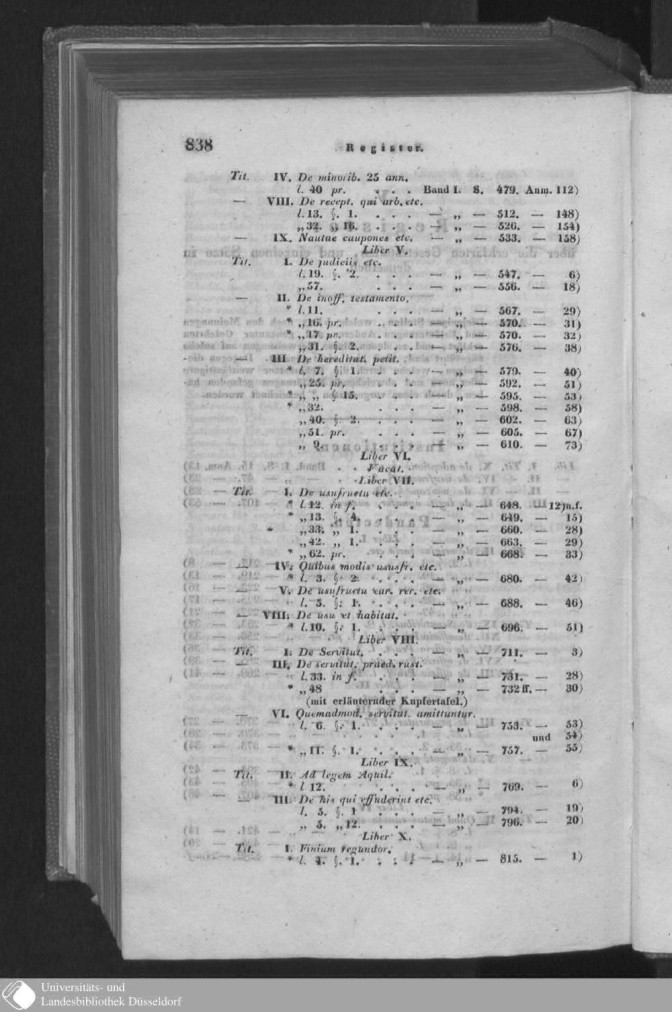 838 Register.
Tit. IV. De minorib. 25 ann.
l. 40 pr. . . . Band I. S. 479. Anm. 112)
— VIII. De recept. qui arb. etc.
l. 13. §. 1. . . . — „ — 512. — 148)
„ 32. „ 16. . . . — „ — 526. — 154)
— IX. Nautae caupones etc. — „ — 533. — 158)
Liber V.
Tit. I. De judiciis etc.
l. 19. §. 2. . . . — „ — 547. — 6)
„ 57. . . . — „ — 556. — 18)
— II. De inoff. testamento.
* l. 11. . . . — „ — 567. — 29)
* „ 16. pr. . . . — „ — 570. — 31)
* „ 17. pr. . . . — „ — 570. — 32)
„ 31. §. 2. . . . — „ — 576. — 38)
— III. De hereditat. petit.
* l. 7. §. 1. . . . — „ — 579. — 40)
„ 25. pr. . . . — „ — 592. — 51)
* „ „ §. 15. . . . — „ — 595. — 53)
* „ 32. . . . — „ — 598. — 58)
„ 40. §. 2. . . . — „ — 602. — 63)
„ 51. pr. . . . — „ — 605. — 67)
„ 9. . . . — „ — 610. — 73)
Liber VI.
Vacat.
Liber VII.
Tit. I. De usufructu etc.
* l. 12. in f. . . . — „ — 648. — 12) u. f.
* „ 13. §. 4. . . . — „ — 649. — 15)
* „ 33. „ 1. . . . — „ — 660. — 28)
„ 42. „ 1. . . . — „ — 663. — 29)
* „ 62. pr. . . . — „ — 668. — 33)
— IV. Quibus modis ususfr. etc.
* l. 3. §. 2. . . . — „ — 680. — 42)
— V. De usufructu ear. rer. etc.
* l. 5. §. 1. . . . — „ — 688. — 46)
— VIII. De usu et habitat.
* l. 10. §. 1. . . . — „ — 696. — 51)
Liber VIII.
Tit. I. De Servitut. . . . — „ — 711. — 3)
— III. De servitut. praed. rust.
* l. 33. in f. . . . — „ — 731. — 28)
* „ 48 . . . — „ — 732 ff. — 30)
(mit erläuternder Kupfertafel.)
— VI. Quemadmod. servitut. amittuntur.
* l. 6. §. 1. . . . — „ — 753. — 53)
und 54)
* „ 11. §. 1. . . . — „ — 757. — 55)
Liber IX.
Tit. II. Ad legem Aquil.
* l 12. . . . — „ — 769. — 6)
— III. De his qui effuderint etc.
l. 5. §. 1 . . . — „ — 794. — 19)
„ 5. „ 12. . . . — „ — 796. — 20)
Liber X.
Tit. I. Finium regundor.
* l. 4. §. 1. . . . — „ — 815. — 1)
Universitäts- und
Landesbibliothek Düsseldorf